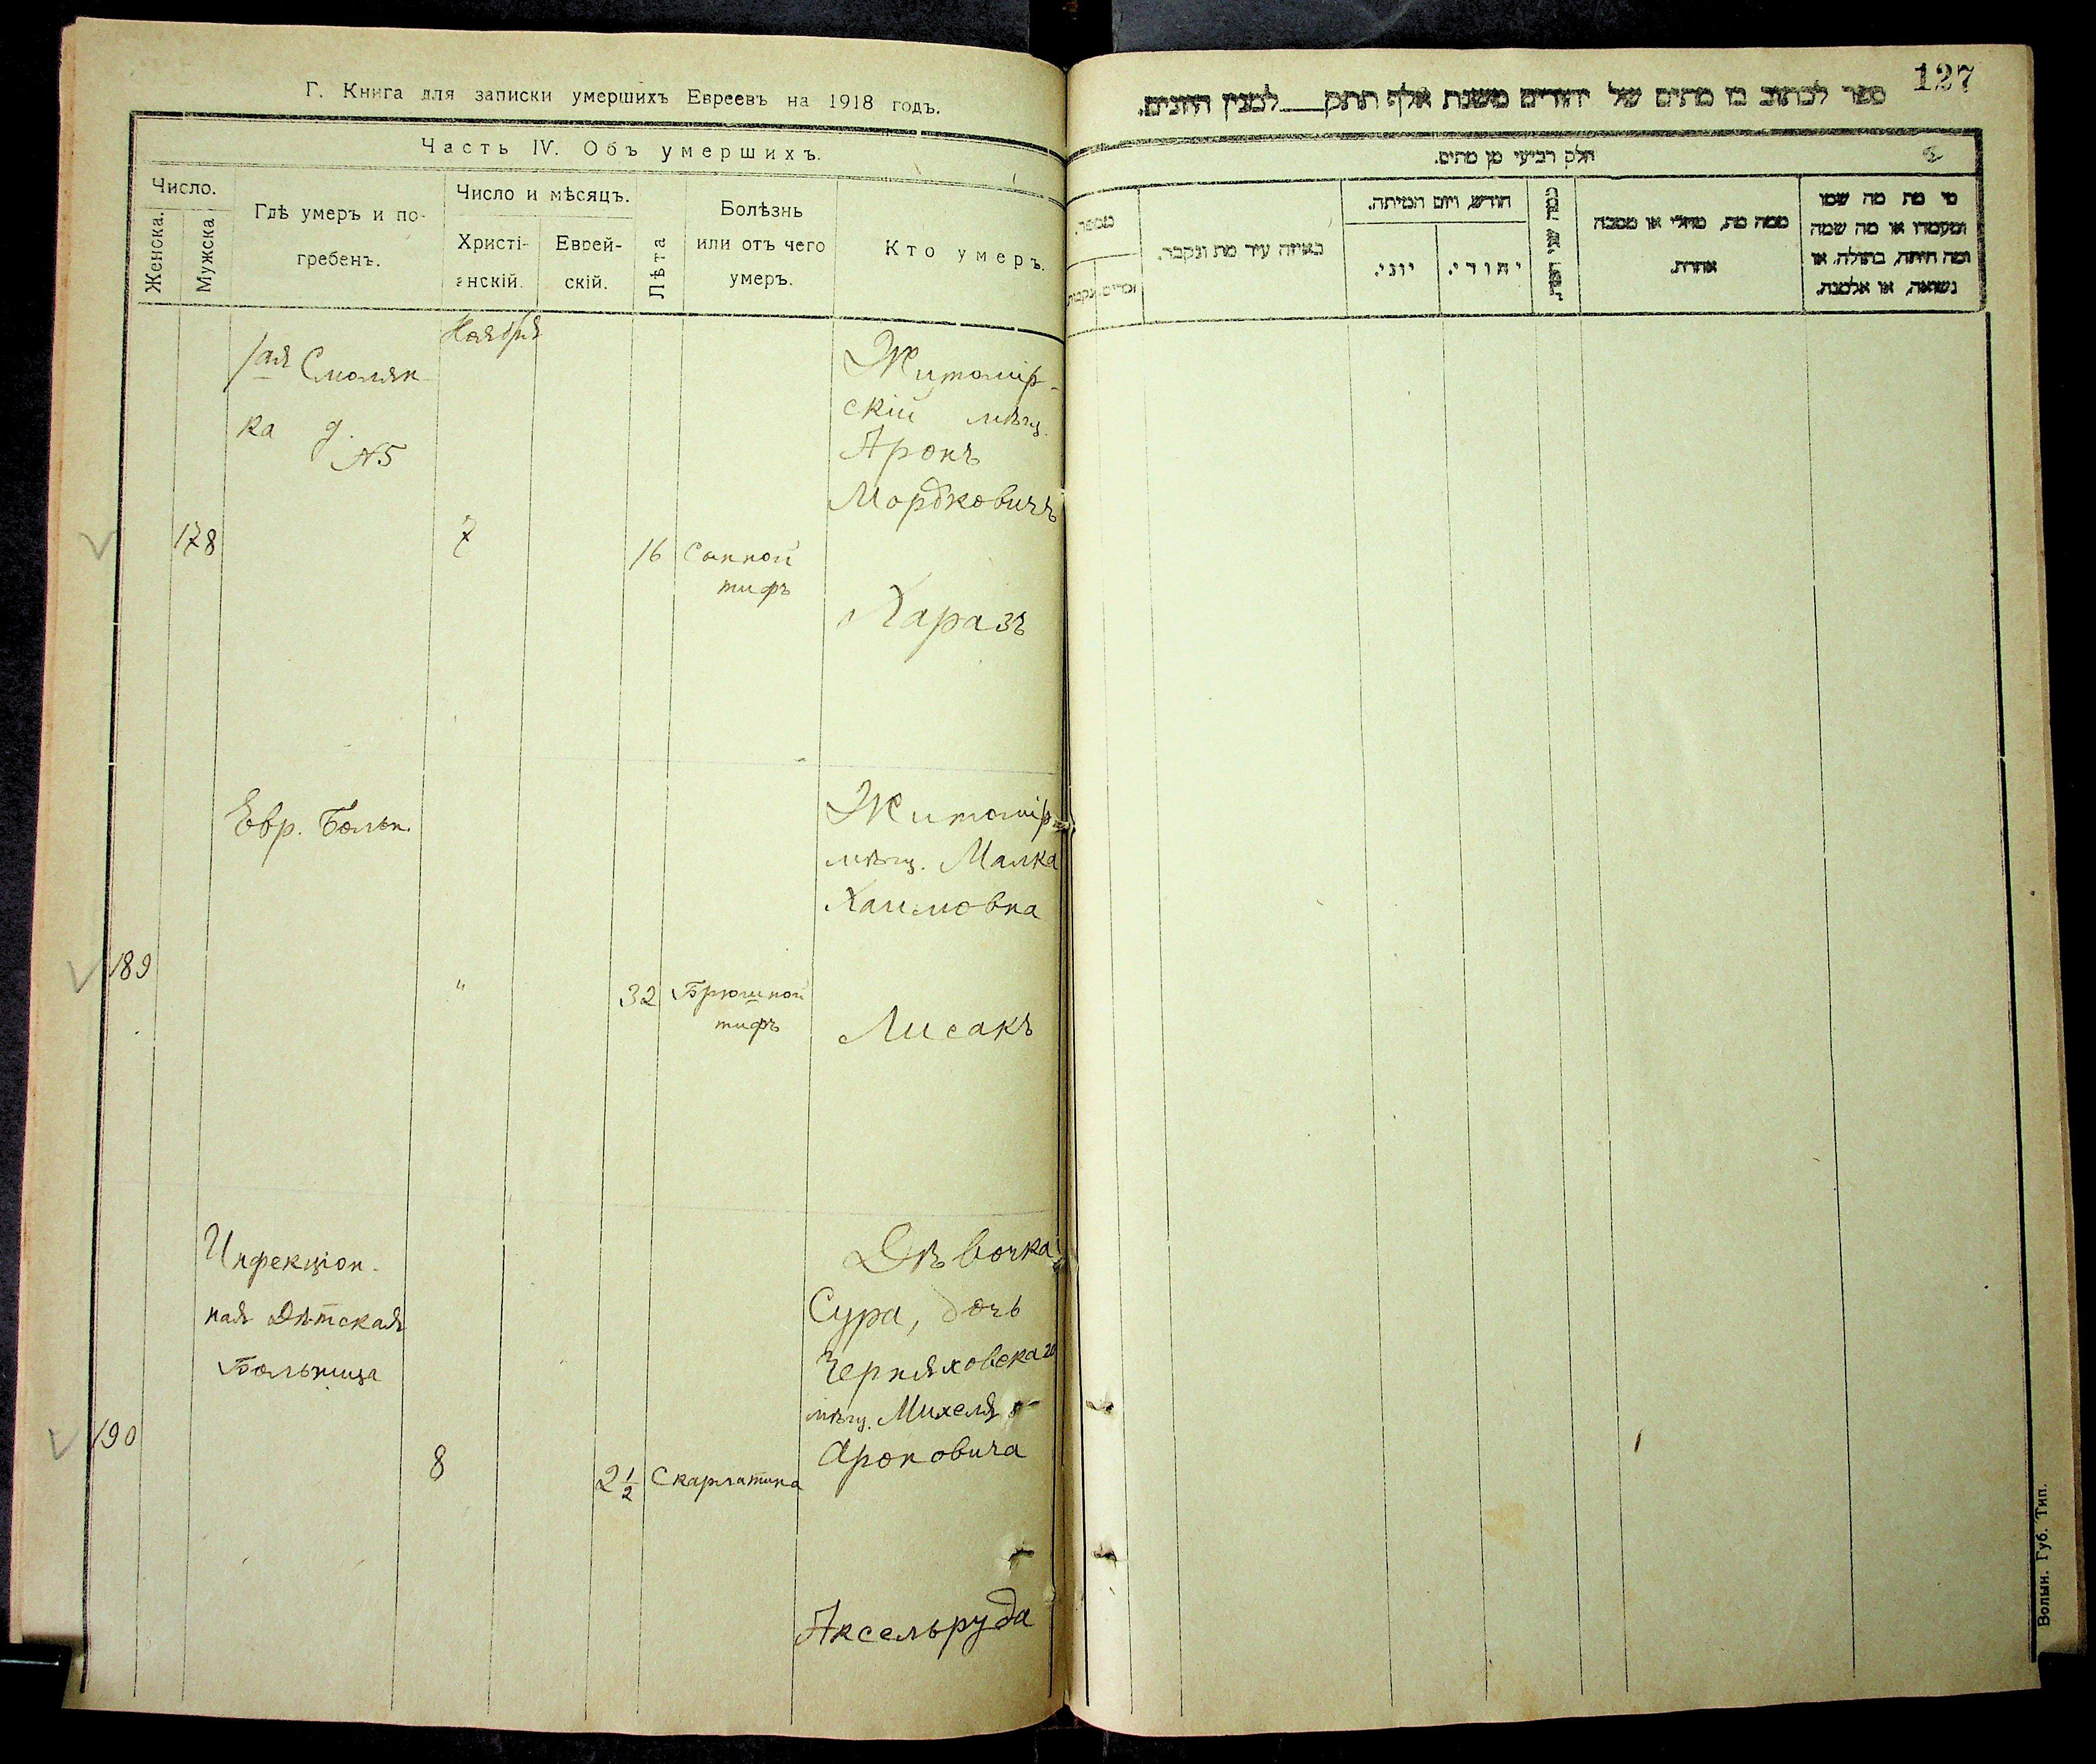 Г. Книга для записки умершихъ Евреевъ на 1918 годъ.
Часть IV. Объ умершихъ.
Число.
Женска.
Мужска
Гдѣ умеръ и по-
гребенъ.
Число и мѣсяцъ.
Христі-
анскій.
Еврей-
скій.
Лѣта
Болѣзнь
или отъ чего
умеръ.
Кто умеръ.
Ноября
1ая Смолян-
ка д.
№5
178
7
16
Сыпной
тифъ
Житомір-
скій мѣщ.
Аронъ
Мордковичъ
Харазъ
Евр. Больн.
189
"
32
Брюшной
тифъ
Житомір.
мѣщ. Малка
Хаимовна
Лисакъ
Инфекціон-
ная Дѣтская
Больница
190
8
2 1/2
Скарлатина
Дѣвочка
Сура, дочь
Черняховскаго
мѣщ. Михеля
Ароновича
Аксельруда
127
ספר לכתוב בו מתים של יהודים משנת אלף תתק ___ למנין היונים.
חלק רביעי מן מתים.
מספר.
זכרים.
נקבות.
באיזה עיר מת ונקבר.
חודש, ויום המיתה.
יוני.
יהודי.
כמה שני
ממה מת, מחלי או מסבה
אחרת.
מי מת מה שמו
ומעמדו או מה שמה
ומה היתה, בתולה, או
נשואה, או אלמנה.
Волын. Губ. Тип.